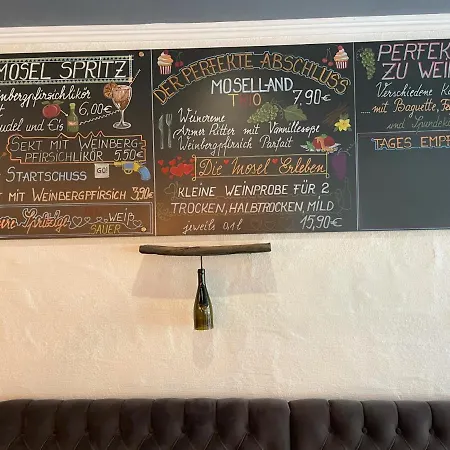 MOSEL SPRITZ
Weinbergpfirsichlikör
6,00€
und Eis
SEKT MIT WEINBERG-
PFIRSICHLIKÖR 5,50€
STARTSCHUSS GO!
MIT WEINBERGPFIRSICH 3,50€
WEIß
SAUER
DER PERFEKTE ABSCHLUSS
MOSELLAND
TRIO 7,90€
Weincreme
Armer Ritter mit Vanillesoße
Weinbergpfirsich Parfait
Die Mosel Erleben
KLEINE WEINPROBE FÜR 2
TROCKEN, HALBTROCKEN, MILD
jeweils 0,1 l 15,90€
PERFEKT
ZU WEIN
Verschiedene
mit Baguette,
und
TAGES